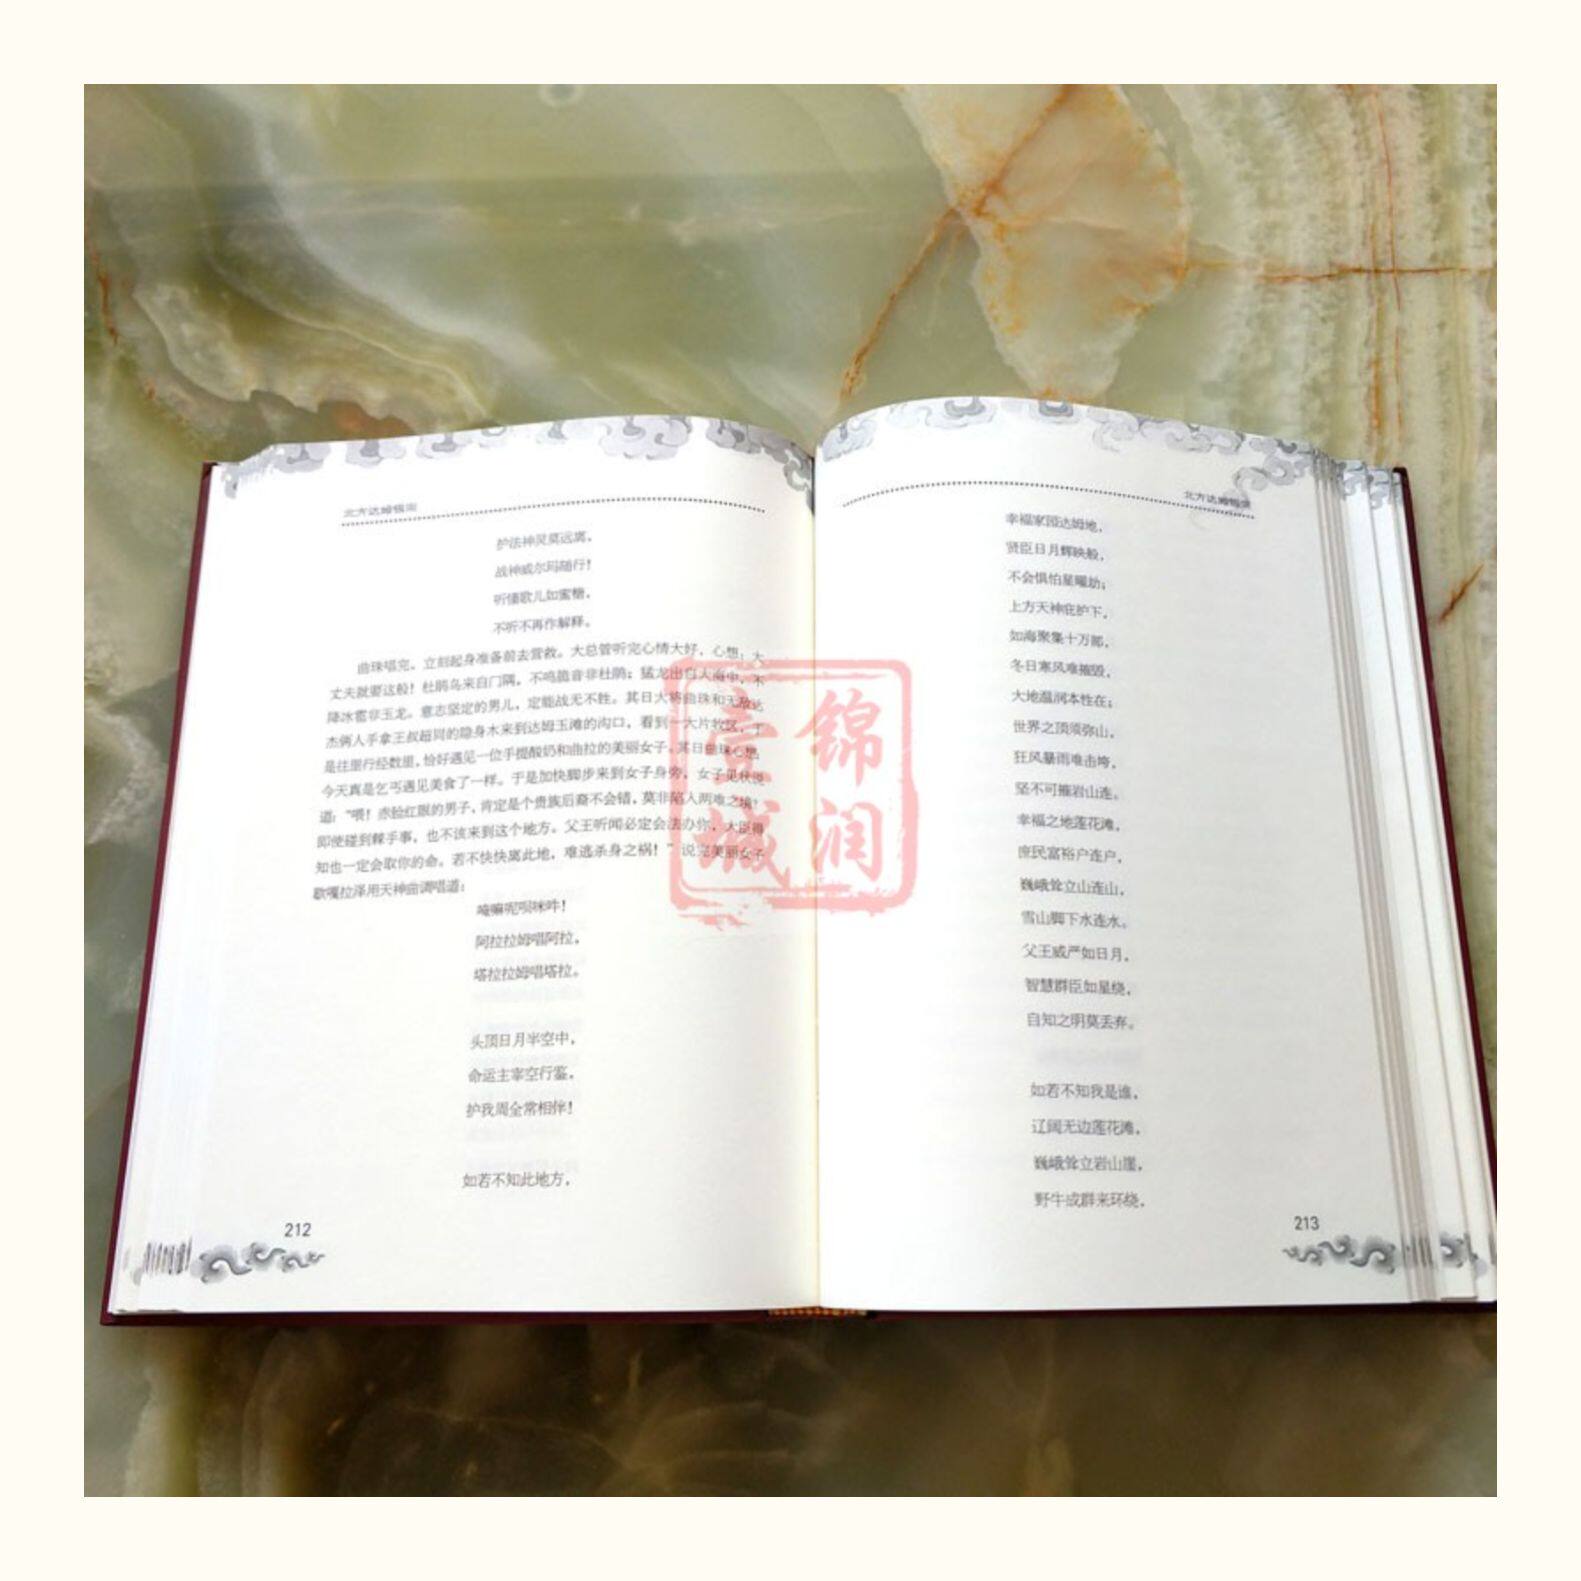 北方达姆
护法神灵莫远离，
战神威尔玛随行！
听懂歌儿如蜜糖，
不听不再作解释。
曲珠唱完，立刻起身准备前去营救。大总管听完心情大好，心想：大
丈夫就要这般！杜鹃鸟来自门隅，不鸣脆音非杜鹃；猛龙出自大海中，不
降冰雹非玉龙。意志坚定的男儿，定能战无不胜。其日大将曲珠和无敌达
杰俩人手拿王叔超同的隐身木来到达姆玉滩的沟口，看到一大片牧区，于
是往里行经数里，恰好遇见一位手提酸奶和曲拉的美丽女子，其日曲珠心想，
今天真是乞丐遇见美食了一样。于是加快脚步来到女子身旁，女子见状说
道：“喂！赤脸红眼的男子，肯定是个贵族后裔不会错，莫非陷入两难之境？
即使碰到棘手事，也不该来到这个地方。父王听闻必定会法办你，大臣得
知也一定会取你的命。若不快快离此地，难逃杀身之祸！”说完美丽女子
歇嘎拉泽用天神曲调唱道：
唵嘛呢呗咪吽！
阿拉拉姆唱阿拉，
塔拉拉姆唱塔拉。
头顶日月半空中，
命运主宰空行鉴，
护我周全常相伴！
如若不知此地方，
212
北方达姆
幸福家园达姆地，
贤臣日月辉映般，
不会惧怕星曜劫；
上方天神庇护下，
如海聚集十万部，
冬日寒风难摧毁，
大地温润本性在；
世界之顶须弥山，
狂风暴雨难击垮，
坚不可摧岩山连。
幸福之地莲花滩，
庶民富裕户连户，
巍峨耸立山连山，
雪山脚下水连水。
父王威严如日月，
智慧群臣如星绕，
自知之明莫丢弃。
如若不知我是谁，
辽阔无边莲花滩，
巍峨耸立岩山崖，
野牛成群来环绕，
213
锦润
壹城